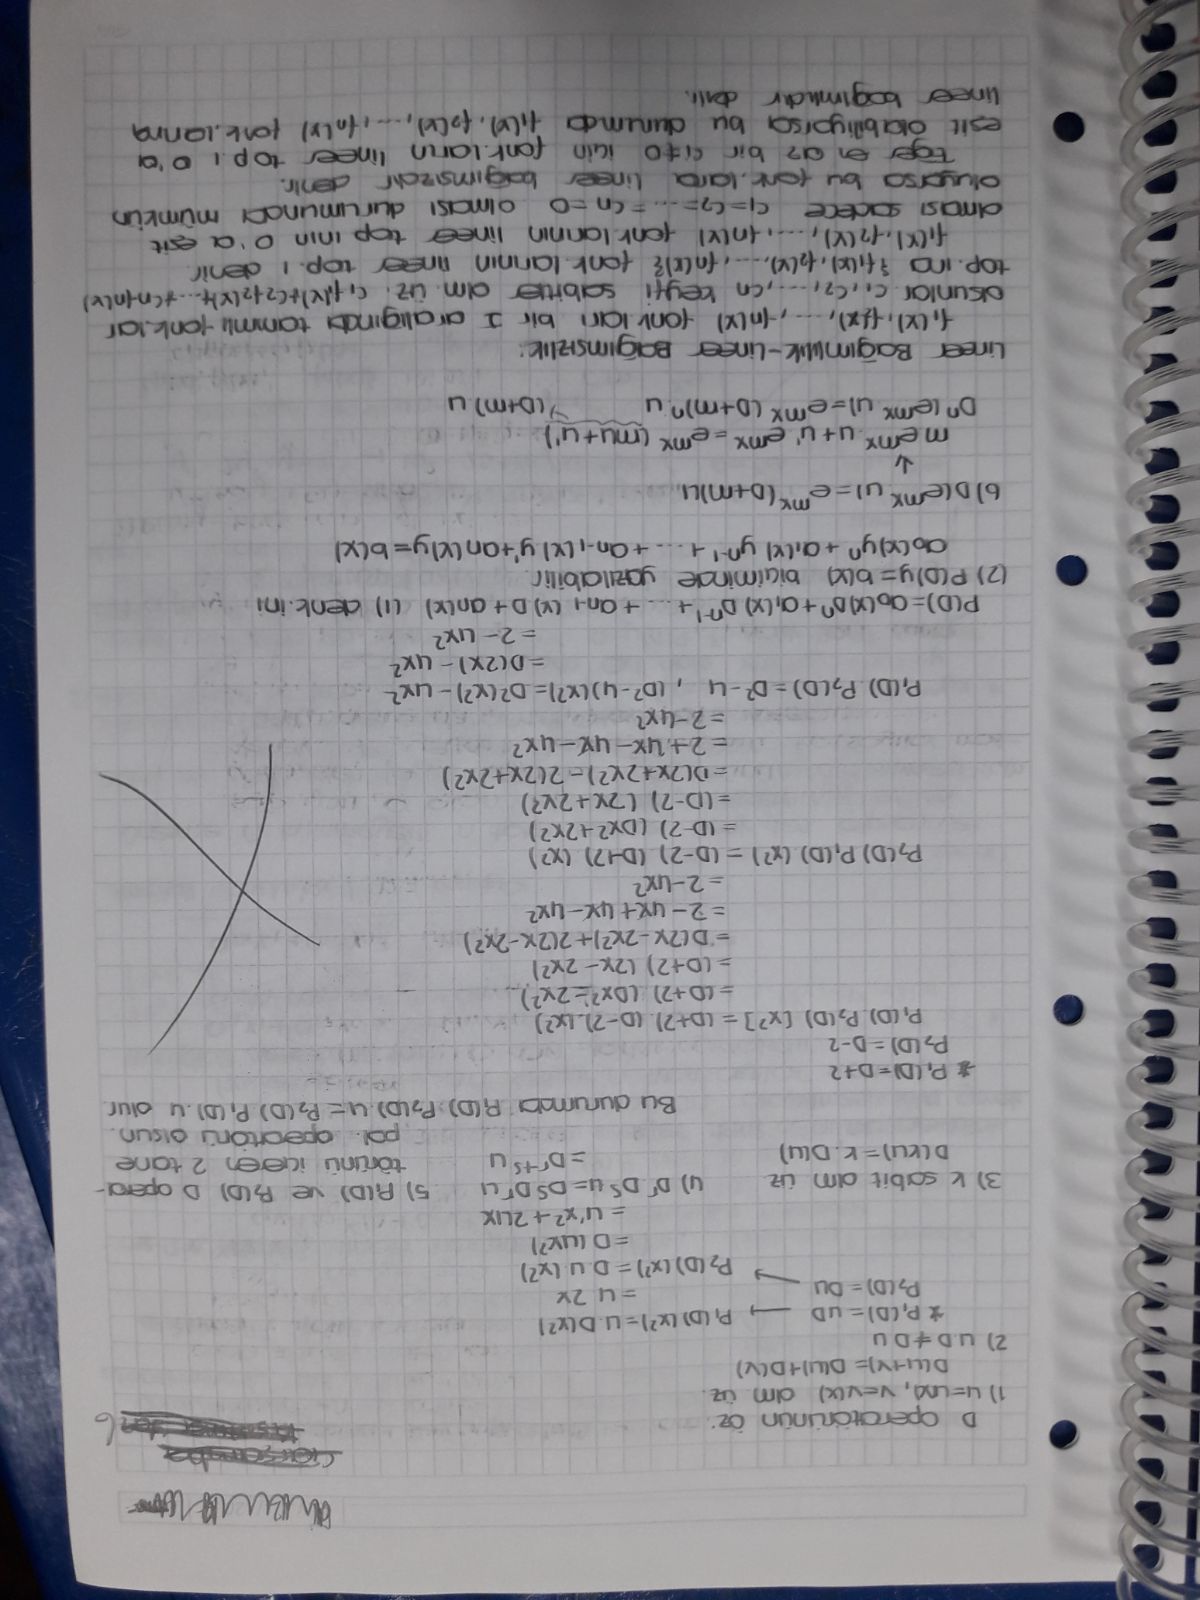 Çarşamba
6
D operatörünün öz:
1) u=u(x), v=v(x) olm üz.
D(u+v)= D(u)+D(v)
2) u.D≠D u
* P₁(D)= uD → P₁(D)(x²)= u.D(x²)
= u.2x
P₂(D)= Du → P₂(D).(x²)= D.u.(x²)
= D(ux²)
= u'x²+2ux
3) k sabit olm üz.
D(ku)= k.D(u)
4) Dʳ Dˢ u= Dˢ Dʳ u
= Dʳ⁺ˢ u
5) P₁(D) ve P₂(D) D opera-
törünü içeren 2 tane
pol. operatörü olsun.
Bu durumda P₁(D).P₂(D).u= P₂(D) P₁(D).u olur.
* P₁(D)=D+2
P₂(D)=D-2
P₁(D).P₂(D) [x²] = (D+2).(D-2).(x²)
= (D+2) (Dx²-2x²)
= (D+2) (2x-2x²)
= D(2x-2x²)+2(2x-2x²)
= 2-4x+4x-4x²
= 2-4x²
P₂(D) P₁(D) (x²) = (D-2) (D+2) (x²)
= (D-2) (Dx²+2x²)
= (D-2) (2x+2x²)
= D(2x+2x²)-2(2x+2x²)
= 2+4x-4x-4x²
= 2-4x²
P₁(D).P₂(D)=D²-4 , (D²-4)(x²)= D²(x²)-4x²
= D(2x)-4x²
= 2-4x²
P(D)=a₀(x)Dⁿ+a₁(x) Dⁿ⁻¹+...+aₙ₋₁(x)D+aₙ(x) (1) denk.ini
(2) P(D)y=b(x) biçiminde yazılabilir.
a₀(x)yⁿ+a₁(x) yⁿ⁻¹+...+aₙ₋₁(x) y'+aₙ(x)y=b(x)
6) D(eᵐˣ u)= eᵐˣ(D+m)u
↓
m eᵐˣ u+u' eᵐˣ= eᵐˣ (mu+u')
Dⁿ(eᵐˣ u)= eᵐˣ (D+m)ⁿ.u → (D+m) u
Lineer Bağımlılık-Lineer Bağımsızlık:
f₁(x), f₂(x), ..., fₙ(x) fonk.ları bir I aralığında tanımlı fonk.lar
olsunlar. c₁, c₂, ..., cₙ keyfi sabitler olm. üz. c₁f₁(x)+c₂f₂(x)+...+cₙfₙ(x)
top.ına {f₁(x), f₂(x), ..., fₙ(x)} fonk.larının lineer top.ı denir.
f₁(x), f₂(x), ..., fₙ(x) fonk.larının lineer top.ının 0'a eşit
olması sadece c₁=c₂=...=cₙ=0 olması durumunda mümkün
oluyorsa bu fonk.lara lineer bağımsızdır denir.
Eğer en az bir cᵢ≠0 için fonk.ların lineer top.ı 0'a
eşit olabiliyorsa bu durumda f₁(x), f₂(x), ..., fₙ(x) fonk.larına
lineer bağımlıdır denir.